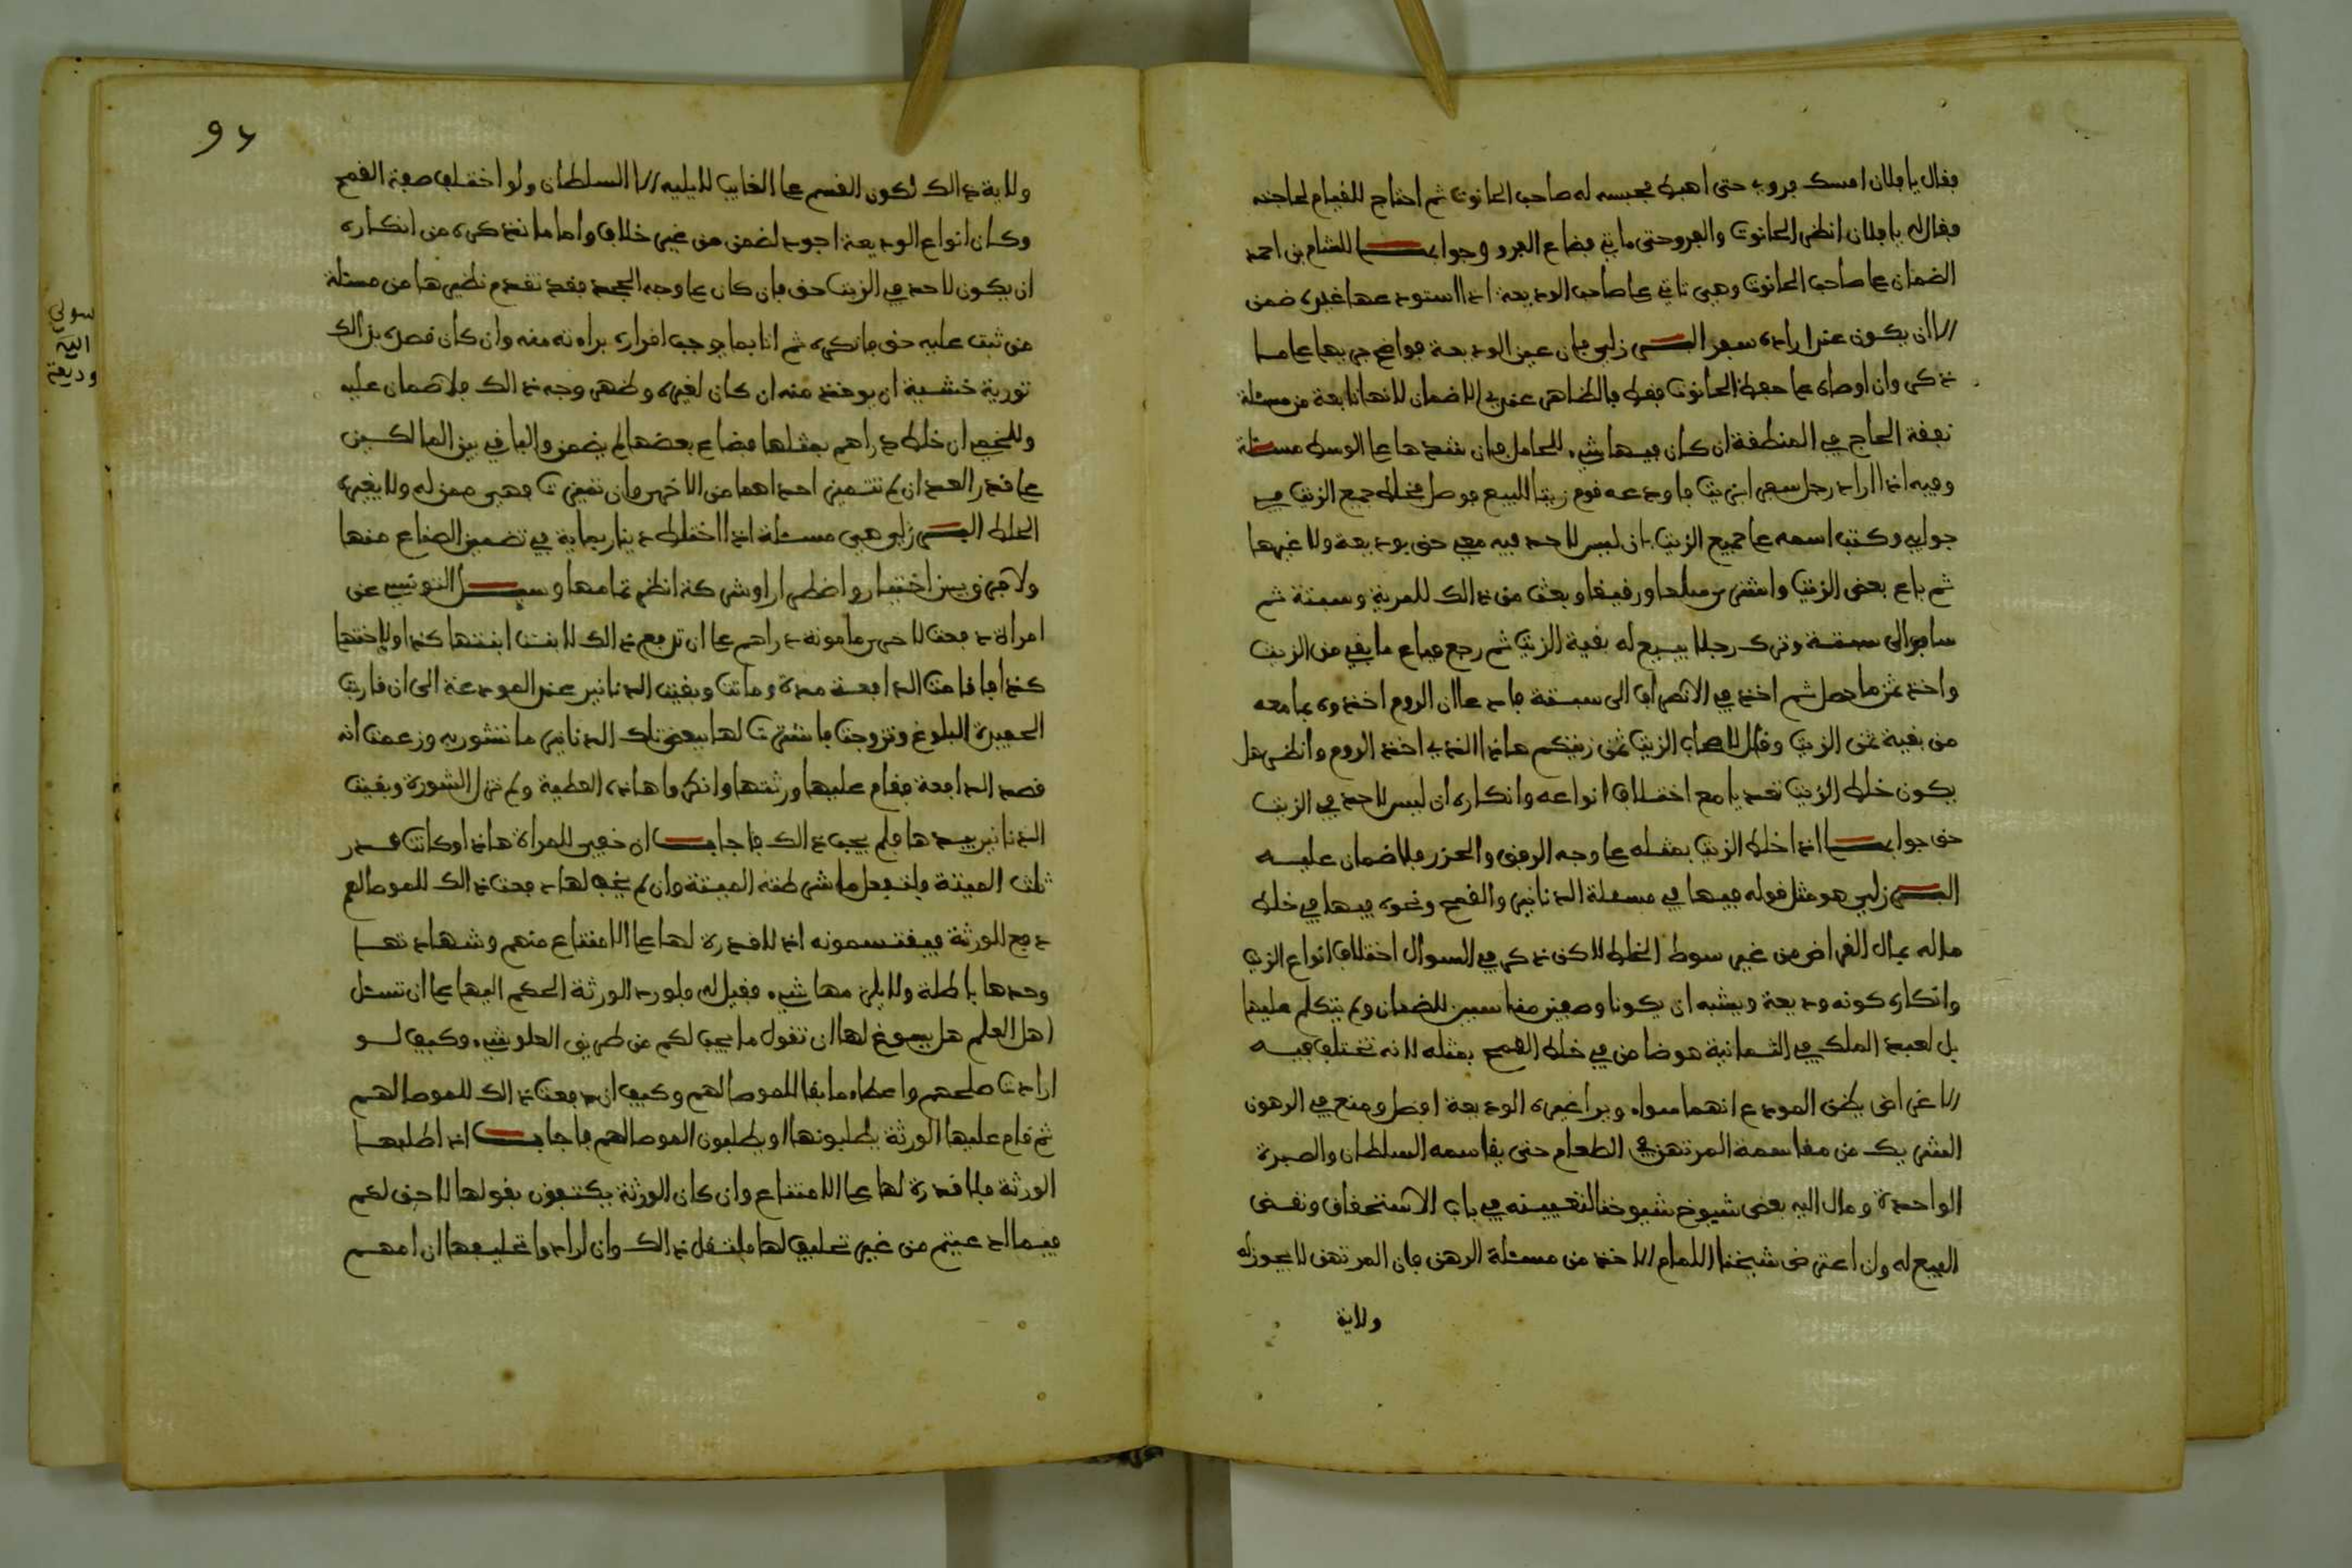 فقال يا فلان امسك فروي حتى اهبط فحبسه له صاحب الحانوت ثم احتاج للقيام لحاجته
فقال له يا فلان انظر الحانوت والفرو حتى ماتي فضاع الفرو وجوابها للقشام بن احمد
الضمان على صاحب الحانوت وهبي تاتي على صاحب الوديعة اذا استودعها غيره ضمن
الا ان يكون عند ارادة سفر البرزلي فان عين الوديعة فواضح جريها على ما
ذكر وان اوصاه على حفظ الحانوت فقط فالظاهر عندي الا ضمان لانها تابعة من مسئلة
نفقة الحاج في المنطقة ان كان فيها شيء للحامل فان نقدها على الوسط مسئلة
وفيه اذا اراد رجل سفر ابزيت فاودعه قوم زيتا للبيع فوصل فخلط جميع الزيت في
جوابي وكتب اسمه على جميع الزيت بان ليس لاحد فيه معي حق بوديعة ولا غيرها
ثم باع بعض الزيت واشترى سلعا ورقيقا وبعث من ذالك للمرية وسبتة ثم
سافر الى سبتة وترك رجلا يبيع له بقية الزيت ثم رجع فباع ما بقي من الزيت
واخذ ثمن ما حصل ثم اخذ في الانصراف الى سبتة فادعى ان الروم اخذوه بما معه
من بقية ثمن الزيت وقال لاصحاب الزيت ثمن زيتكم هاذا الذي اخذ الروم وانظر هل
يكون خلط الزيت تعديا مع اختلاف انواعه وانكاره ان ليس لاحد في الزيت
حق جوابها اذا خلط الزيت بمثله على وجه الرفق والحزر فلا ضمان عليه
البرزلي هو مثل قوله فيها في مسئلة الدنانير والقمح ونحوه فيها في خلط
ماله بمال القراض من غير سوط الخلط لاكن ذكر في السوال اختلاف انواع الزيت
وانكاره كونه وديعة ويشبه ان يكونا وصفين مناسبين للضمان ولم يتكلم عليها
بل لعبد الملك في الثمانية هو ضامن في خلط القمح بمثله لانه تختلف فيه
الاغراض يظن المودع انهما سواء ويرا غيره الوديعة افضل ومنع في الرهون
الشريك من مقاسمة المرتهن في الطعام حتى يقاسمه السلطان والصبرة
الواحدة ومال اليه بعض شيوخ شيوخنا لتعيينه في باب الاستحقاق ونقض
البيع له وان اعترض شيخنا الامام الاخذ من مسئلة الرهن فان المرتهن لا يجوز له
ولاية
97
ولاية ذالك لكون القسم على الغايب لا يليه الا السلطان ولو اختلف صفة القمح
وكان انواع الوديعة اجود لضمن من غير خلاف واما ما ذكره من انكاره
ان يكون لاحد في الزيت حق فان كان على وجه الجحد فقد تقدم نظيرها من مسئلة
من ثبت عليه حق فانكره ثم اتا بما يوجب اقراره براءته منه وان كان قصده بذالك
تورية خشية ان يوخذ منه ان كان لغيره وظهر وجه ذالك فلا ضمان عليه
وللخمي ان خلط دراهم بمثلها فضاع بعضها لم يضمن والباقي بين المالكين
على قدر العدد ان لم تتميز احداهما من الاخرى وان تميزت فهي ممن له ولا يغيره
الخلط البرزلي وهي مسئلة اذا اختلط دينار بماية في تضمين الصناع منها
ولا فرق بين اختيار واضطرار او شركة انظر تمامها وسئل التونسي عن
امراة دفعت لاخرى مامونة دراهم على ان ترفع ذالك لابنت ابنتها كذا ولاختها
كذا فاقامت الدافعة مدة وماتت وبقيت الدنانير عند المودعة الى ان قاربت
الحفيدة البلوغ وتزوجت فاشترت لها ببعض تلك الدنانير ما تتشور به وزعمت انه
قصد الدافعة فقام عليها ورثتها وانكروا هاذه العطية ولم تزل الشورة وبقيت
الدنانير بيدها فلم يجب ذالك فاجاب ان خفي للمراة هاذا وكانت قدر
ثلث الميتة فلتفعل ما شرطته الميتة وان لم يخف لها دفعت ذالك للموصا لهم
دفع للورثة فيقتسمونه اذ لا قدرة لها على الامتناع منهم وشهادتها
وحدها باطلة ولا يلزمها شيء فقيل له فلو رد الورثة الحكم اليها على ان تسئل
اهل العلم هل يسوغ لها ان تقول ما يجب لكم من طريق العلو شيء وكيف لو
ارادت صلحهم واعطاء ما بقا للموصا لهم وكيف ان دفعت ذالك للموصا لهم
ثم قام عليها الورثة يطلبونها او يطلبون الموصا لهم فاجاب اذا طلبها
الورثة فلا قدرة لها على الامتناع وان كان الورثة يكتفون بقولها لا حق لكم
فيما ادعيتم من غير تحليف لها فلتفعل ذالك وان ارادوا تحليفها ان امهم
سوي
الية
وديعة